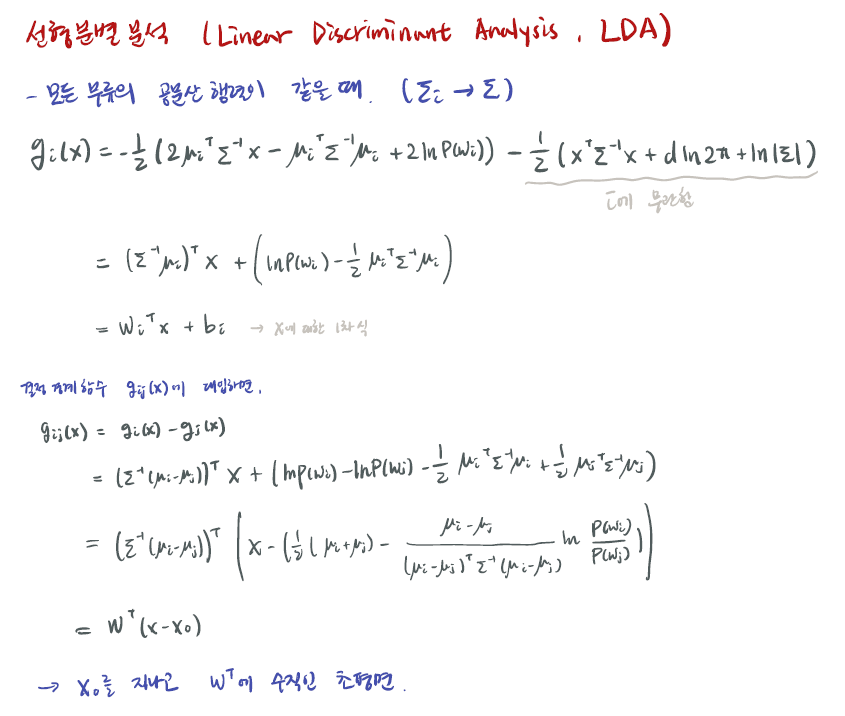 선형분별분석 (Linear Discriminant Analysis, LDA)
- 모든 부류의 공분산 행렬이 같을 때. (Σi → Σ)
gi(x) = -1/2 (2μiᵀΣ⁻¹x - μiᵀΣ⁻¹μi + 2lnP(wi)) - 1/2 (xᵀΣ⁻¹x + d ln2π + ln|Σ|)
i에 무관함
= (Σ⁻¹μi)ᵀ x + (lnP(wi) - 1/2 μiᵀΣ⁻¹μi)
= wiᵀx + bi → x에 대한 1차식
결정 경계함수 gij(x)에 대입하면,
gij(x) = gi(x) - gj(x)
= (Σ⁻¹(μi-μj))ᵀ x + (lnp(wi) - lnP(wj) - 1/2 μiᵀΣ⁻¹μi + 1/2 μjᵀΣ⁻¹μj)
= (Σ⁻¹(μi-μj))ᵀ (x - (1/2 (μi+μj) - (μi-μj)/((μi-μj)ᵀΣ⁻¹(μi-μj)) ln P(wi)/P(wj)))
= wᵀ(x-x₀)
→ x₀를 지나고 wᵀ에 수직인 초평면.